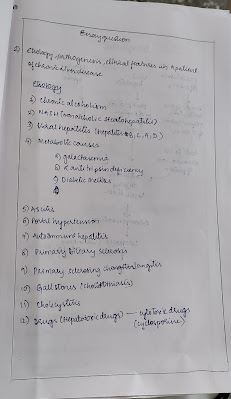 Essay question
Etiology, pathogenesis, clinical features in a patient of chronic liver disease
Etiology
1) Chronic alcoholism
2) NASH (nonalcoholic steatohepatitis)
3) Viral hepatitis (Hepatitis B, C, A, D)
4) Metabolic causes
a) galactosemia
b) α anti trypsin deficiency
c) Diabetic mellitus
5) Ascites
6) Portal hypertension
7) Autoimmune hepatitis
8) Primary biliary sclerosis
9) Primary sclerosing cholangitis
10) Gall stones (cholelithiasis)
11) Cholecystitis
12) Drugs (Hepatotoxic drugs) — cytotoxic drugs
(cyclosporine)